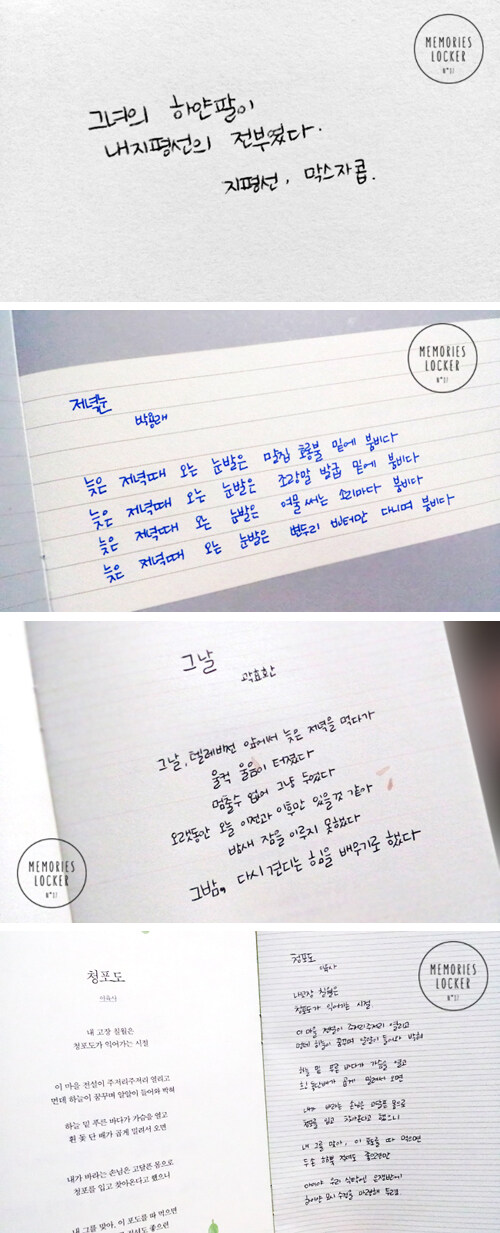 MEMORIES
LOCKER
N°31
그녀의 하얀팔이
내지평선의 전부였다.
지평선, 막스자콥.
MEMORIES
LOCKER
N°31
저녁눈
박용래
늦은 저녁때 오는 눈발은 말집 호롱불 밑에 붐비다
늦은 저녁때 오는 눈발은 조랑말 발굽 밑에 붐비다
늦은 저녁때 오는 눈발은 여물 써는 소리마다 붐비다
늦은 저녁때 오는 눈발은 변두리 빈터만 다니며 붐비다
그날
곽효환
그날, 텔레비전 앞에서 늦은 저녁을 먹다가
울컥 울음이 터졌다
멈출수 없어 그냥 두었다
오랫동안 오늘 이전과 이후만 있을것 같아
밤새 잠을 이루지 못했다
그밤, 다시 견디는 힘을 배우기로 했다
MEMORIES
LOCKER
N°31
청포도
이육사
내 고장 칠월은
청포도가 익어가는 시절
이 마을 전설이 주저리주저리 열리고
먼데 하늘이 꿈꾸며 알알이 들어와 박혀
하늘 밑 푸른 바다가 가슴을 열고
흰 돛 단 배가 곱게 밀려서 오면
내가 바라는 손님은 고달픈 몸으로
청포를 입고 찾아온다고 했으니
내 그를 맞아, 이 포도를 따 먹으면
청포도
이육사
내고장 칠월은
청포도가 익어가는 시절
이 마을 전설이 주저리주저리 열리고
먼데 하늘이 꿈꾸며 알알이 들어와 박혀
하늘 밑 푸른 바다가 가슴을 열고
흰 돛단배가 곱게 밀려서 오면
내가 바라는 손님은 고달픈 몸으로
청포를 입고 찾아온다고 했으니
내 그를 맞아, 이 포도를 따 먹으면
두 손 함뿍 적셔도 좋으련만
아이야 우리 식탁엔 은쟁반에
하이얀 모시 수건을 마련해 두렴
MEMORIES
LOCKER
N°31